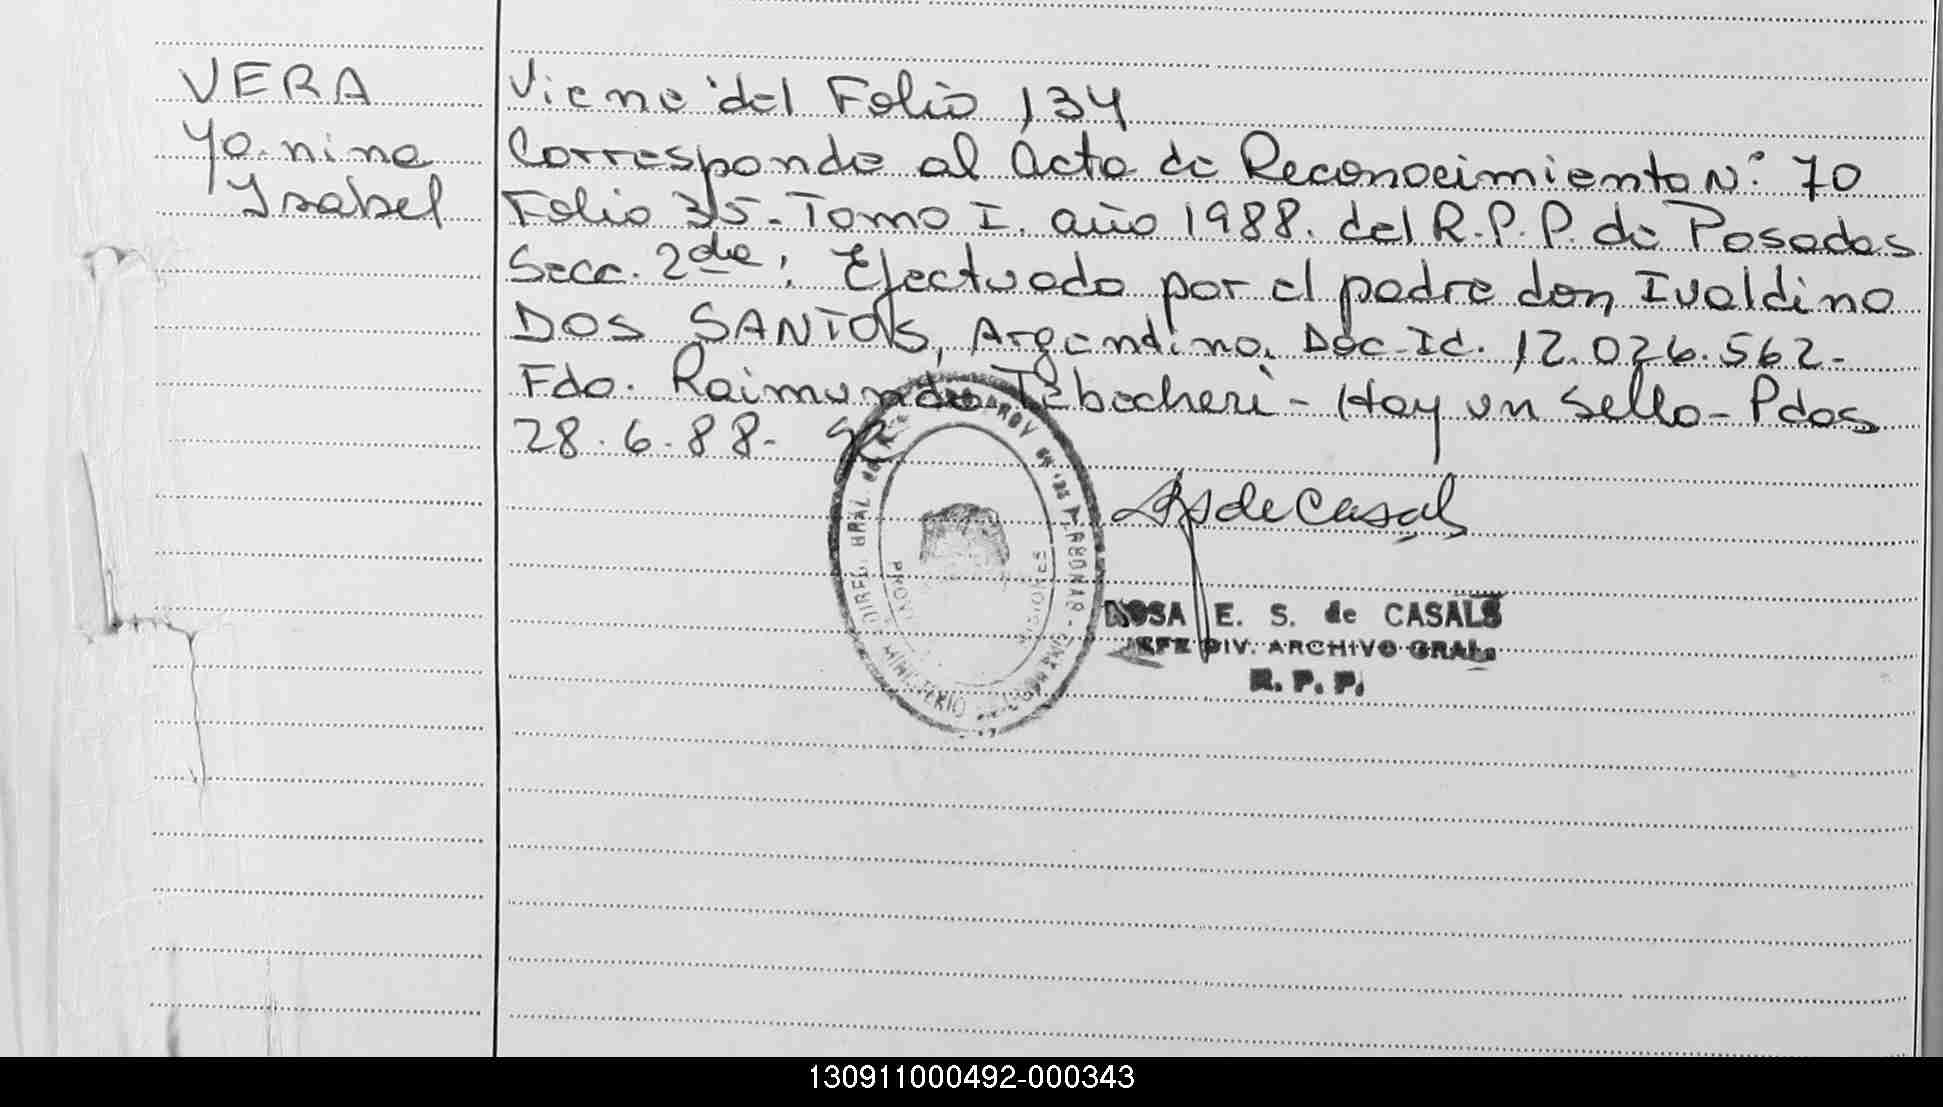 VERA
Yanina
Isabel
Viene del Folio 134
Corresponde al Acta de Reconocimiento N° 70
Folio 35 - Tomo I. año 1988. del R.P.P. de Posadas
Secc. 2da; Efectuado por el padre don Ivaldino
DOS SANTOS, Argentino. Doc. Id. 12.026.562-
Fdo. Raimundo - Hay un Sello - Pdas
28.6.88-
de Casals
ROSA E. S. de CASALS
JEFE DIV. ARCHIVO GRAL.
R. P. P.
DIREC. GRAL. DE LAS PERSONAS
MINISTERIO
MISIONES
130911000492-000343